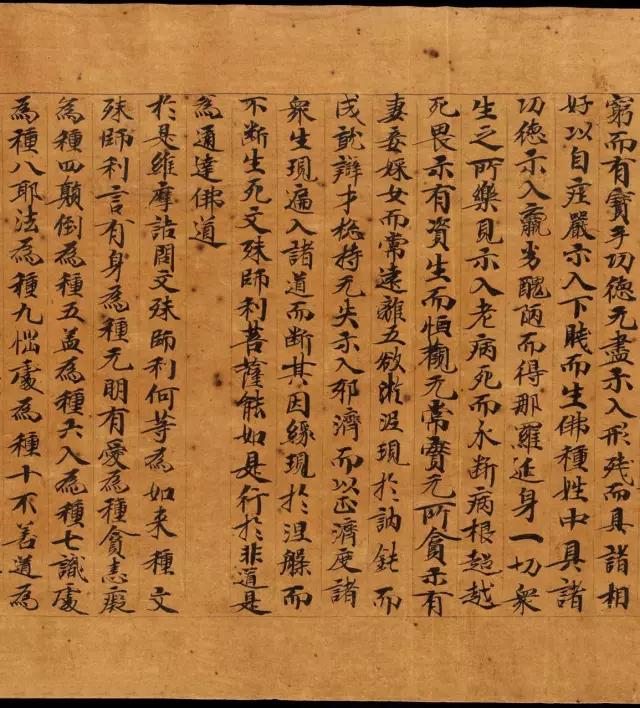 窮而有寶手功德无盡示入形残而具諸相
好以自莊嚴示入下賤而生佛種姓中具諸
功德示入羸劣醜陋而得那羅延身一切衆
生之所樂見示入老病死而永断病根超越
死畏示有資生而恒觀无常實无所貪示有
妻妾婇女而常遠離五欲淤泥現於訥鈍而
成就辯才捴持无失示入邪濟而以正濟度諸
衆生現遍入諸道而断其因緣現於涅槃而
不断生死文殊師利菩薩能如是行於非道是
為通達佛道
於是維摩詰問文殊師利何等為如来種文
殊師利言有身為種无明有愛為種貪恚癡
為種四顛倒為種五盖為種六入為種七識處
為種八耶法為種九惱處為種十不善道為